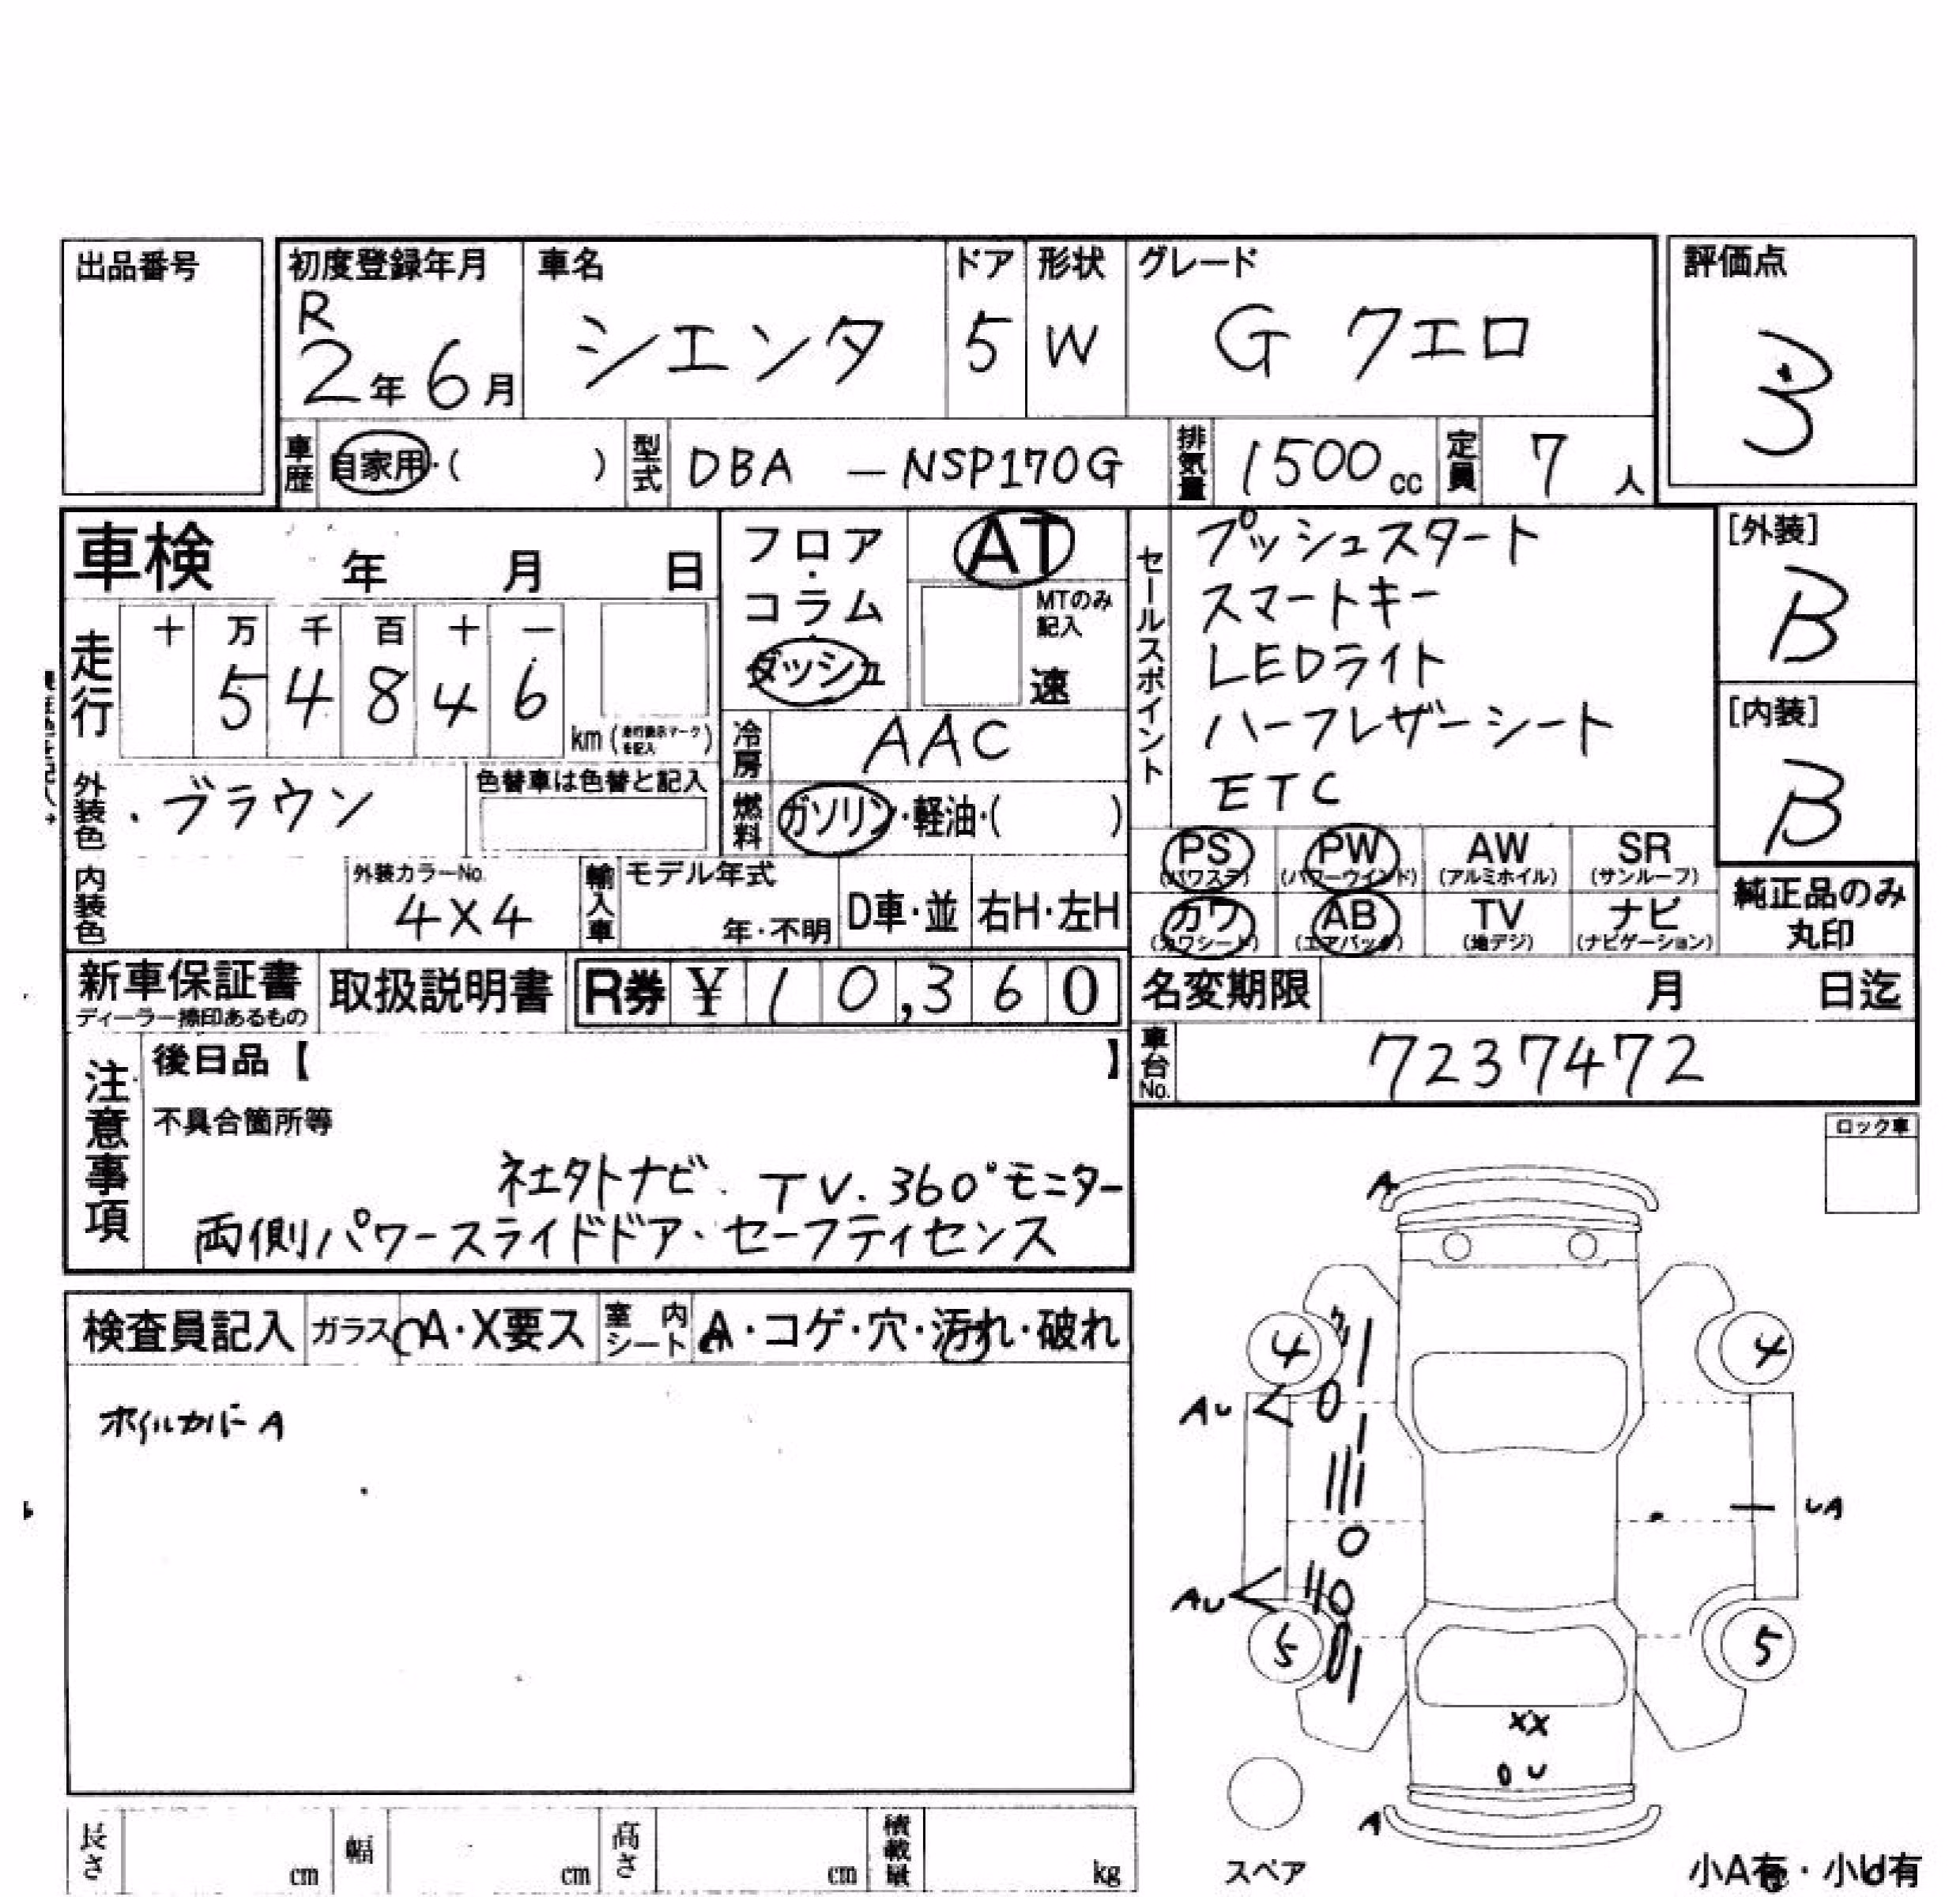 出品番号
初度登録年月 車名 ドア 形状 グレード 評価点
R
2年 6月 シエンタ 5 W G クエロ 3
車歴 自家用・( ) 型式 DBA - NSP170G 排気量 1500cc 定員 7人
車検 年 月 日
フロア・コラム・ダッシュ
AT
MTのみ記入
速
セールスポイント
プッシュスタート
スマートキー
LEDライト
ハーフレザーシート
ETC
[外装]
B
[内装]
B
走行 十 万 千 百 十 一
5 4 8 4 6
km (走行表示マークを記入)
冷房 AAC
外装色 ブラウン 色替車は色替と記入
燃料 ガソリン・軽油・( )
PS PW AW SR
(パワステ) (パワーウインド) (アルミホイル) (サンルーフ)
カワ AB TV ナビ
(カワシート) (エアバック) (地デジ) (ナビゲーション)
純正品のみ
丸印
内装色 外装カラーNo. 4X4 輸入車 モデル年式 年・不明 D車・並 右H・左H
新車保証書 取扱説明書 R券 ¥ 10,360
ディーラー捺印あるもの
名変期限 月 日迄
車台No. 7237472
注意事項
後日品【 】
不具合箇所等
社外ナビ. TV. 360°モニター
両側パワースライドドア・セーフティセンス
ロック車
検査員記入 ガラス A・X要ス 室内シート A・コゲ・穴・汚れ・破れ
ホイルカバーA
A
4 4
AU
UA
AU
5 5
XX
U
A
スペア
長さ cm 幅 cm 高さ cm 積載量 kg
小A有・小U有